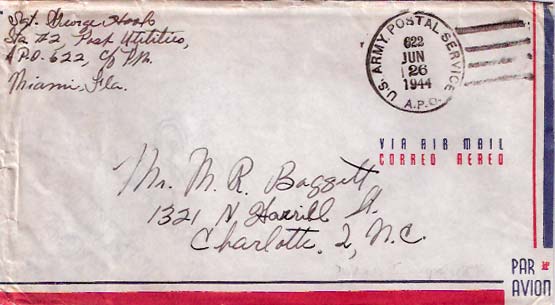 Sgt. George Hoofs
Sta #2 Post Utilities,
A.P.O. 622, c/o P.M.
Miami, Fla.
U.S. ARMY POSTAL SERVICE
622
JUN
26
1944
A.P.O.
VIA AIR MAIL
CORREO AEREO
Mr. M. R. Baggett
1321 N. Harrill St.
Charlotte, 2, N.C.
PAR
AVION